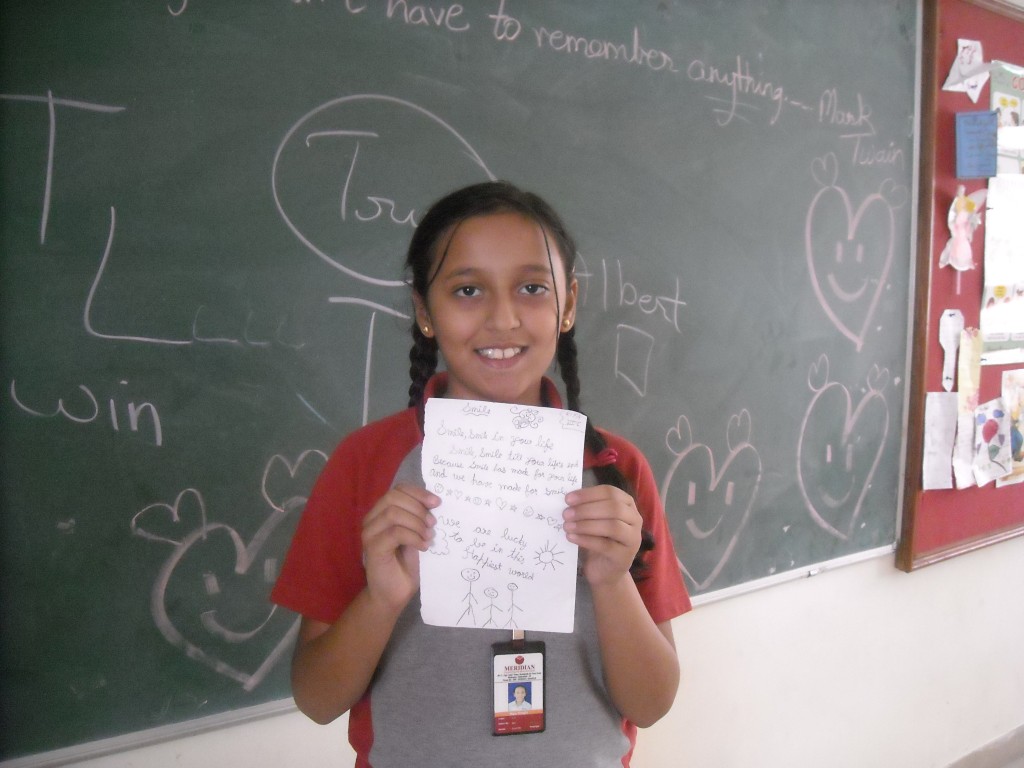 have to remember anything... Mark
Twain
T
Tru
L
Albert
win
Smile
Smile, Smile in your life
Smile, Smile till your life's end
Because Smile has made for your life
and we have made for smile
we are lucky
to be in this
Happiest world
MERIDIAN